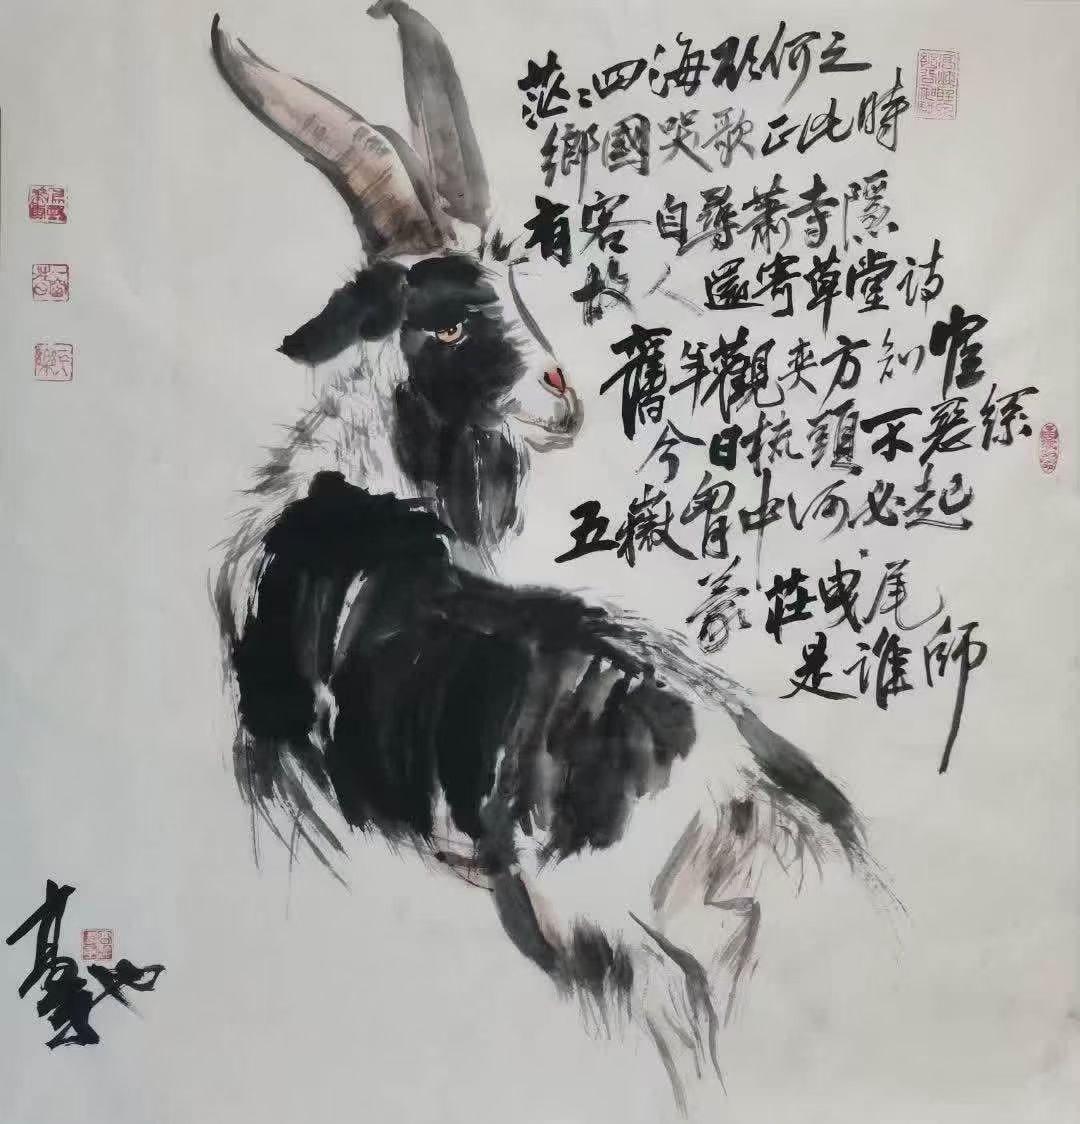 茫々四海欲何之
鄉國哭歌正此時
有客自尋蕭寺隱
故人還寄草堂詩
舊年觀奕方知
今日梳頭不
五嶽胷中何必起
蒙莊曳尾
是誰師